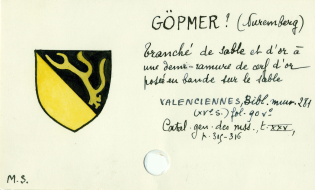 GÖPMER! (Nuremberg)
tranché de sable et d'or à
une demi-ramure de cerf d'or
posée en bande sur le sable
VALENCIENNES, Bibl. mun. 281
(XVe s.) fol. 90 vº
Catal. gen. des mss, t. XXV,
p. 315-316
M.S.